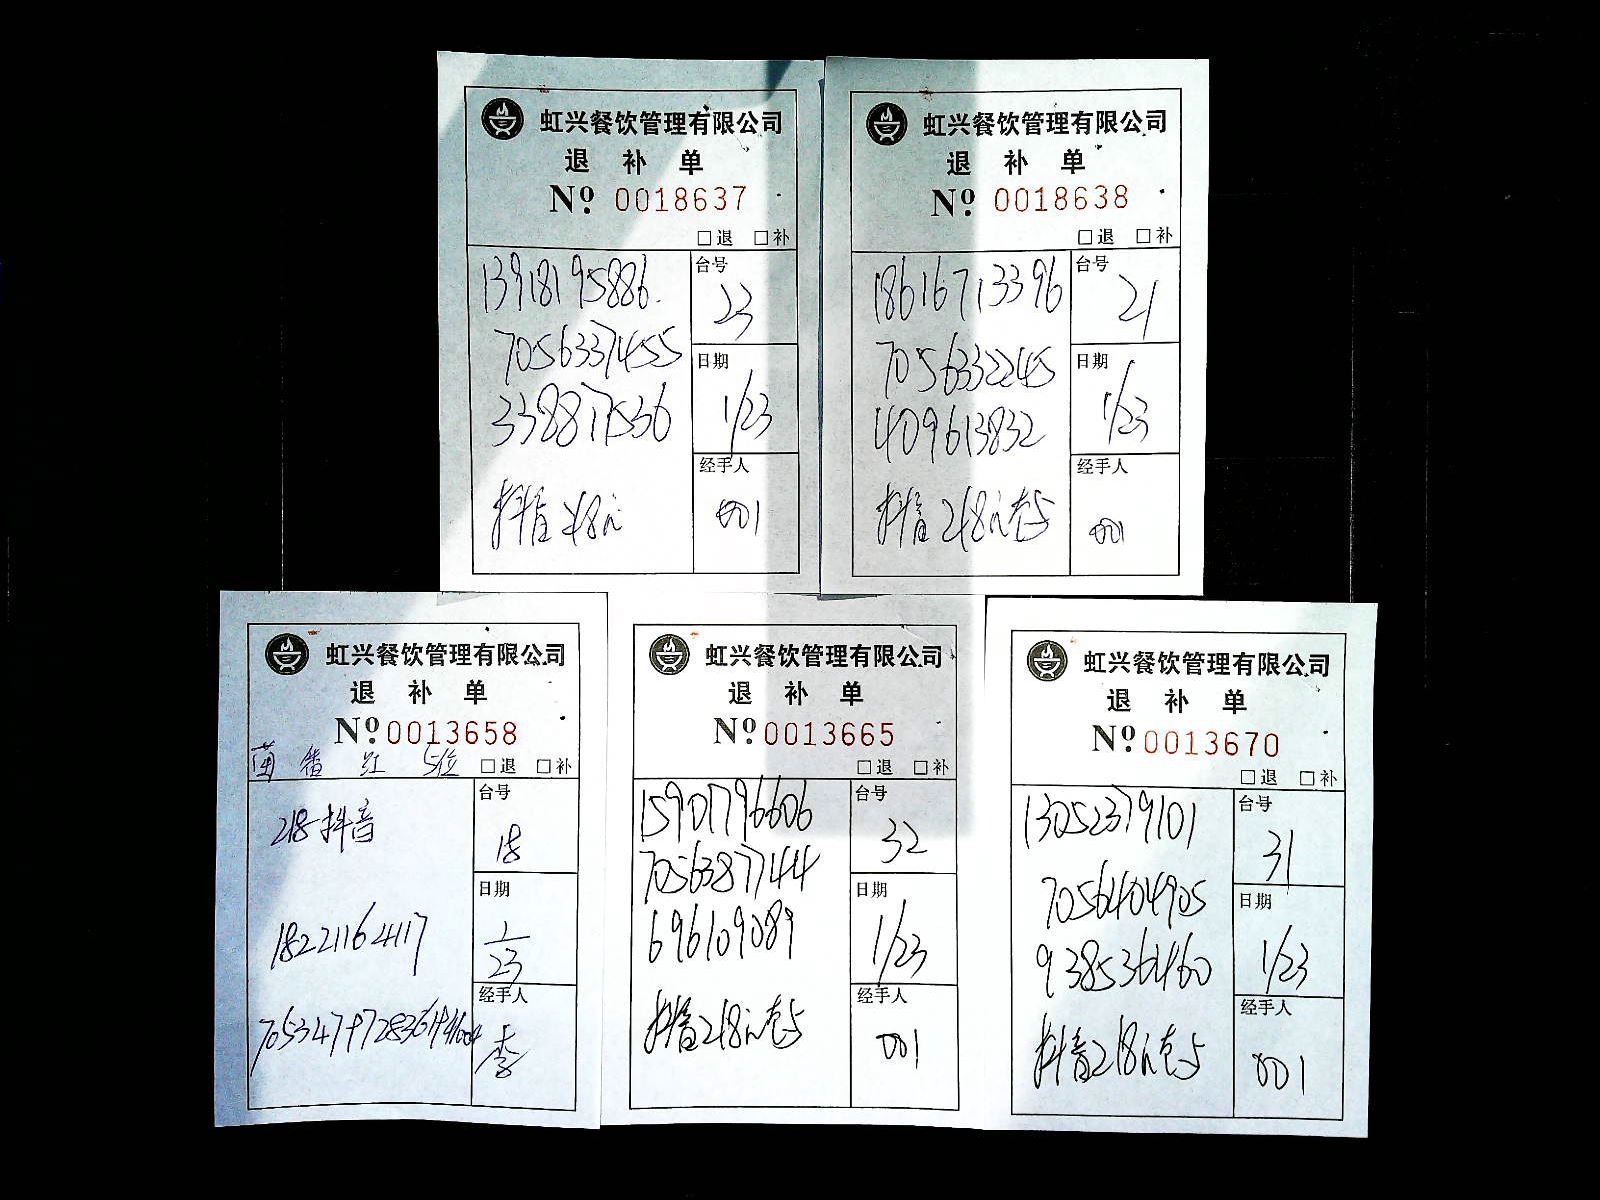 虹兴餐饮管理有限公司
退 补 单
Nº 0018637
□退 □补
13918195886.
70563374555
338817536
抖音 218元
台号
23
日期
1/23
经手人
001
虹兴餐饮管理有限公司
退 补 单
Nº 0018638
□退 □补
18616713396
7056332245
409613832
抖音218元
台号
21
日期
1/23
经手人
001
虹兴餐饮管理有限公司
退 补 单
Nº 0013658
菌 番 红 5位
□退 □补
218抖音
18221164117
台号
18
日期
1
23
经手人
李
虹兴餐饮管理有限公司
退 补 单
Nº 0013665
□退 □补
15901796606
7056387744
696109089
抖音218元
台号
32
日期
1/23
经手人
001
虹兴餐饮管理有限公司
退 补 单
Nº 0013670
□退 □补
13052379101
7056404905
9385364460
抖音218元
台号
31
日期
1/23
经手人
001